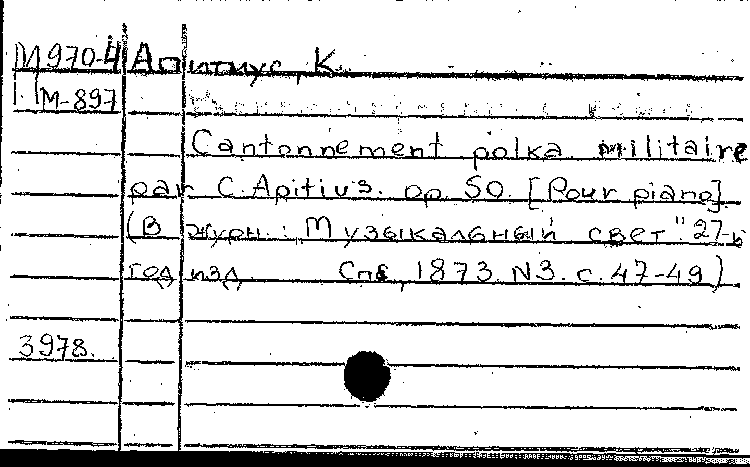 М970-4 Апитиус, К.
М-897
Cantonnement polka militaire
par C. Apitius. op. 50. [Pour piano]
(В журн.: "Музыкальный свет". 27-й
год изд. Спб, 1873. N3. с. 47-49)
3978.